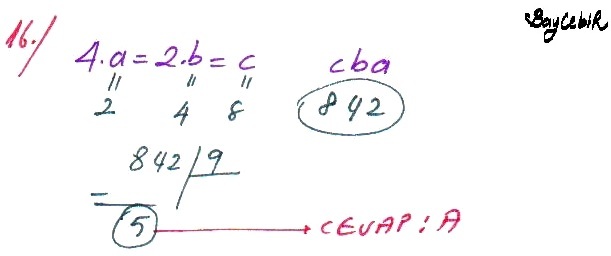 BayCebiR
16./
4.a = 2.b = c cba
" " "
2 4 8 842
842 | 9
5 → CEVAP : A